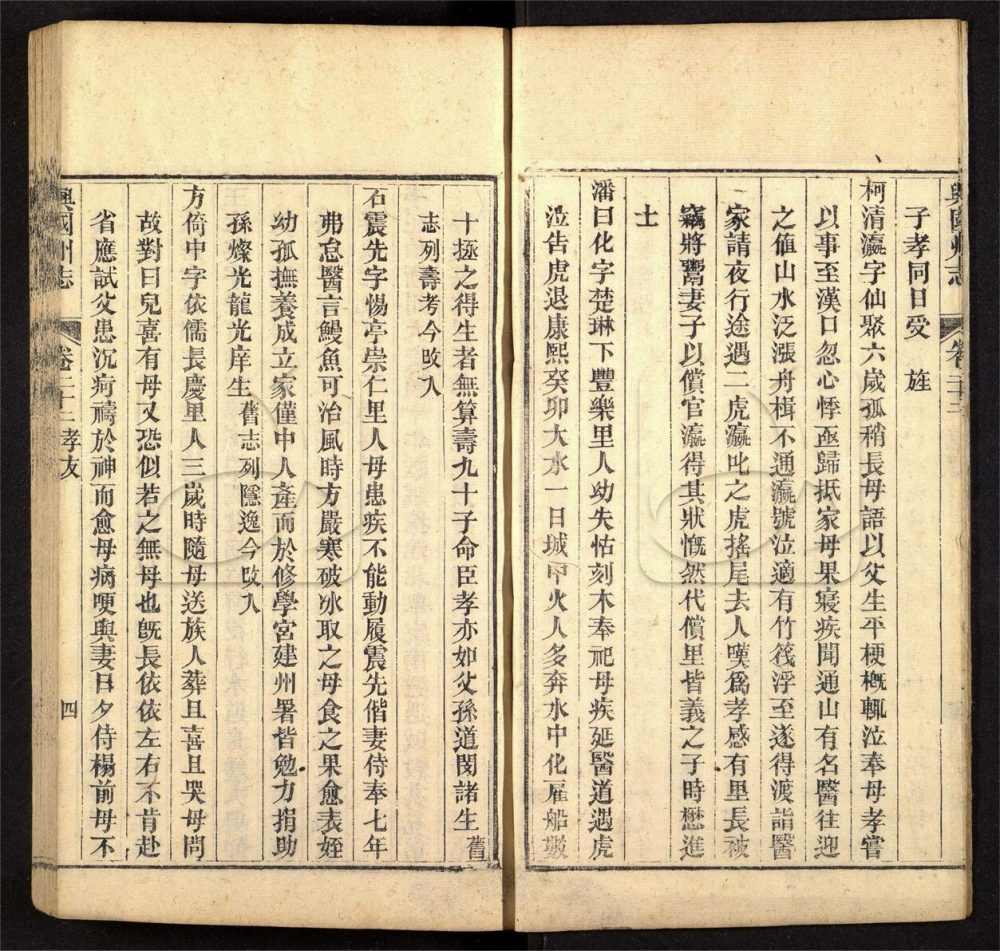 興國州志 卷二十三
子孝同日受 旌
柯清瀛字仙聚六歲孤稍長母語以父生平梗概輒泣奉母孝嘗
以事至漢口忽心悸亟歸抵家母果寢疾聞通山有名醫往迎
之值山水泛漲舟楫不通瀛號泣適有竹筏浮至遂得渡詣醫
家請夜行途遇二虎瀛叱之虎搖尾去人嘆爲孝感有里長被
竊將鬻妻子以償官瀛得其狀慨然代償里皆義之子時懋進
士
潘曰化字楚琳下豐樂里人幼失怙刻木奉祀母疾延醫道遇虎
泣告虎退康熙癸卯大水一日城中火人多奔水中化雇船數
十拯之得生者無算壽九十子命臣孝亦如父孫道閔諸生舊
志列壽考今改入
石震先字惕亭崇仁里人母患疾不能動履震先偕妻侍奉七年
弗怠醫言鰻魚可治風時方嚴寒破冰取之母食之果愈表姪
幼孤撫養成立家僅中人產而於修學宮建州署皆勉力捐助
孫燦光龍光庠生舊志列隱逸今改入
方倚中字依儒長慶里人三歲時隨母送族人葬且喜且哭母問
故對曰兒喜有母又恐似若之無母也旣長依依左右不肯赴
省應試父患沉疴禱於神而愈母病哽與妻日夕侍榻前母不
興國州志 卷二十三 孝友 四